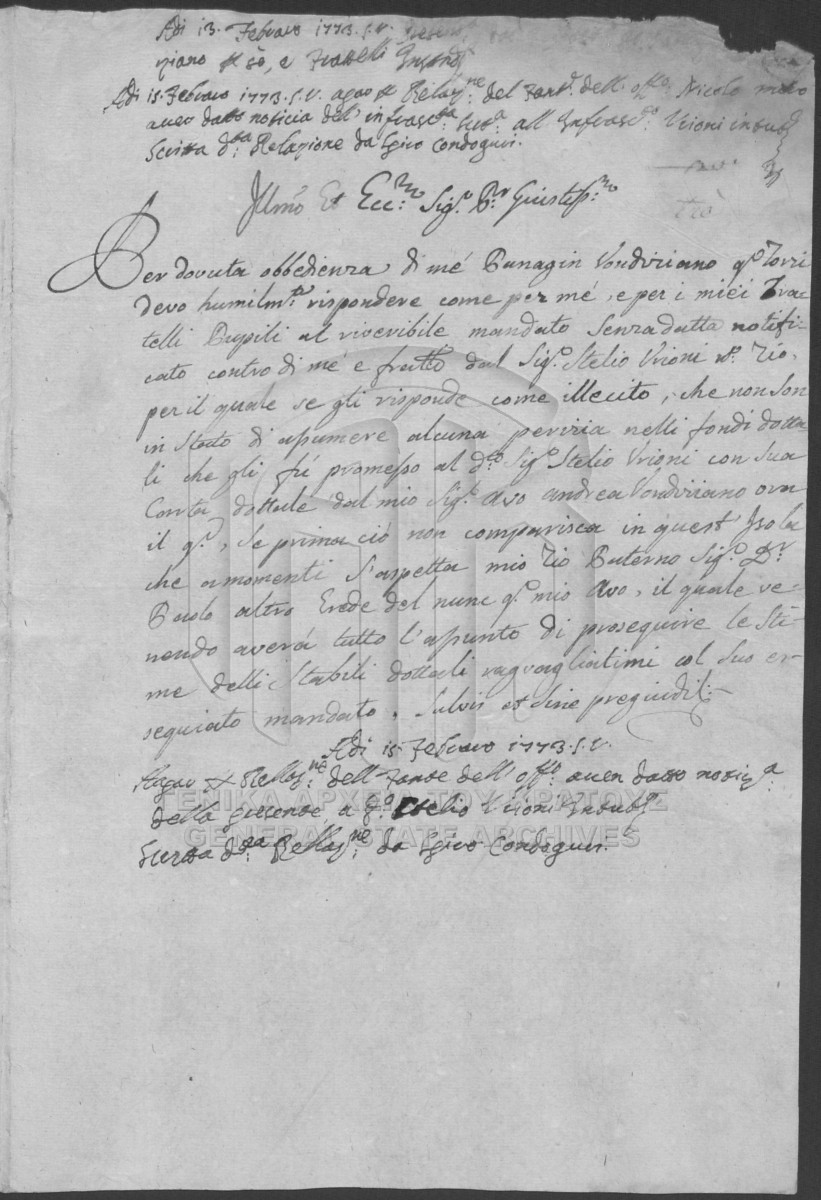 Adi 13. Febraro 1773. S.V. Presen
riano p se, e Fratelli
Adi 15. Febraro 1773. S.V. apar p Relaz.ne del Fant.e dell' Off.o Nicolò
aver datto noticia dell' infrascta Scrra all' Infrasc.o Vrioni in
Scritta d.ta Relazione da Spiro Condoguri.
Illmo Et Ecc.mo Sig.r D.r Giustiss.mo
Per dovuta obbedienza di mé Panagin Vondiziano q.m Zorzi
devo humilm.te rispondere come per mé, e per i miei Fra
telli Pupili al riveribile mandato Senza datta notifi-
cato contro di mé e fratto dal Sig.r Stelio Vrioni
per il quale se gli risponde come illecito, che non son
in stato di asumere alcuna perizia nelli fondi dotta
li che gli fú promesso al d.o Sig.r Stelio Vrioni con sua
Carta dottale dal mio Sig.r Avo andrea Vondiziano ora
il q.m, se prima ció non comparisca in quest' Isola
che a momenti s'aspetta mio Zio Paterno Sig.r D.r
Paolo altro Erede del nunc q.m mio Avo, il quale ve-
nendo averá tutto l'apunto di proseguire le Sti-
me delli Stabili dottali raguagliatimi col suo es-
sequiato mandato, Salvis et sine pregiudit.
Adi 15. Febraro 1773. S.V.
Apar p Relaz.ne dell Fante dell' Off.o aver datto notiz.a
della presente, a S.r Stelio Vrioni
Scritta d.ta Rellaz.ne da Spiro Condoguri.
ΓΕΝΙΚΑ ΑΡΧΕΙΑ ΤΟΥ ΚΡΑΤΟΥΣ
GENERAL STATE ARCHIVES